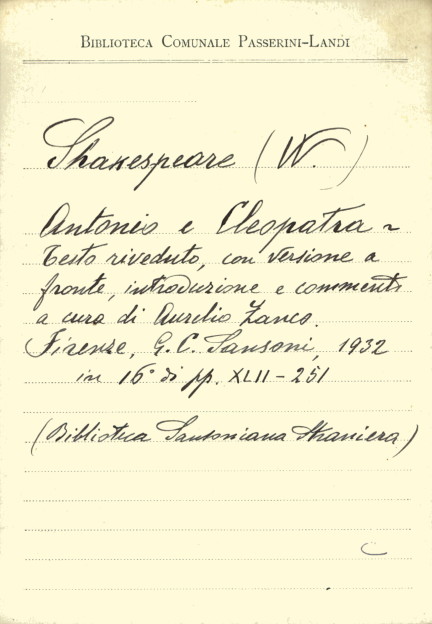 BIBLIOTECA COMUNALE PASSERINI-LANDI
Shakespeare (W.)
Antonio e Cleopatra -
Testo riveduto, con versione a
fronte, introduzione e commenti
a cura di Aurelio Zanco.
Firenze, G. C. Sansoni, 1932
in 16° di pp. XLII - 251
(Biblioteca Sansoniana Straniera)